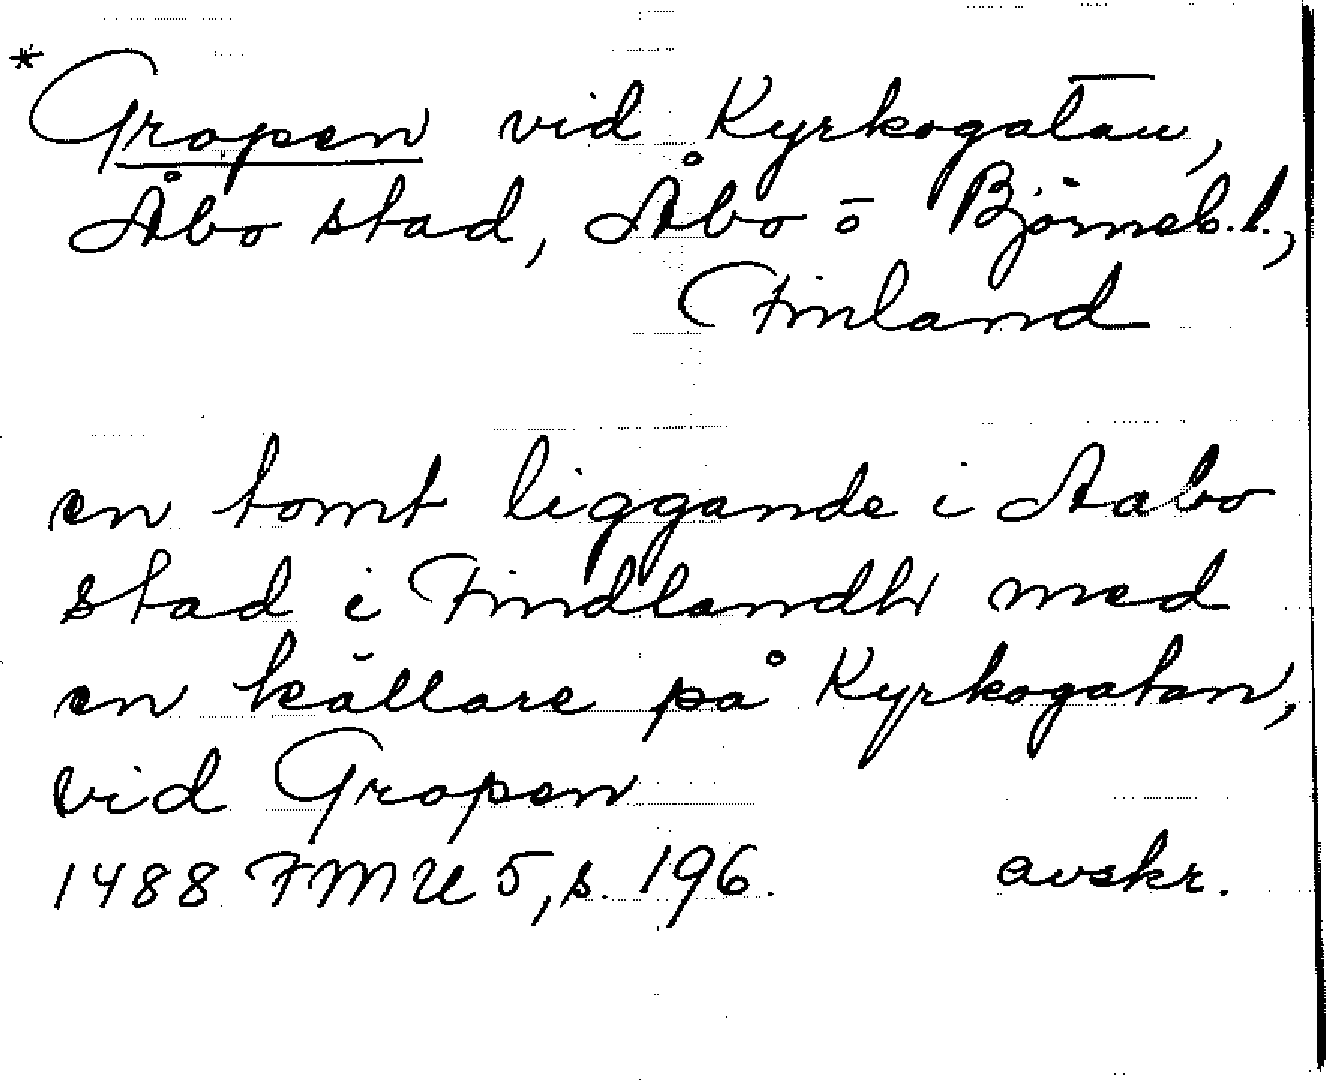 * Gropen vid Kyrkogatan,
Åbo stad, Åbo o Björneb. l.,
Finland
en tomt liggande i Aabo
stad i Findlandh med
en källare på Kyrkogatan,
vid Gropen
1488 FMU 5, s. 196. avskr.